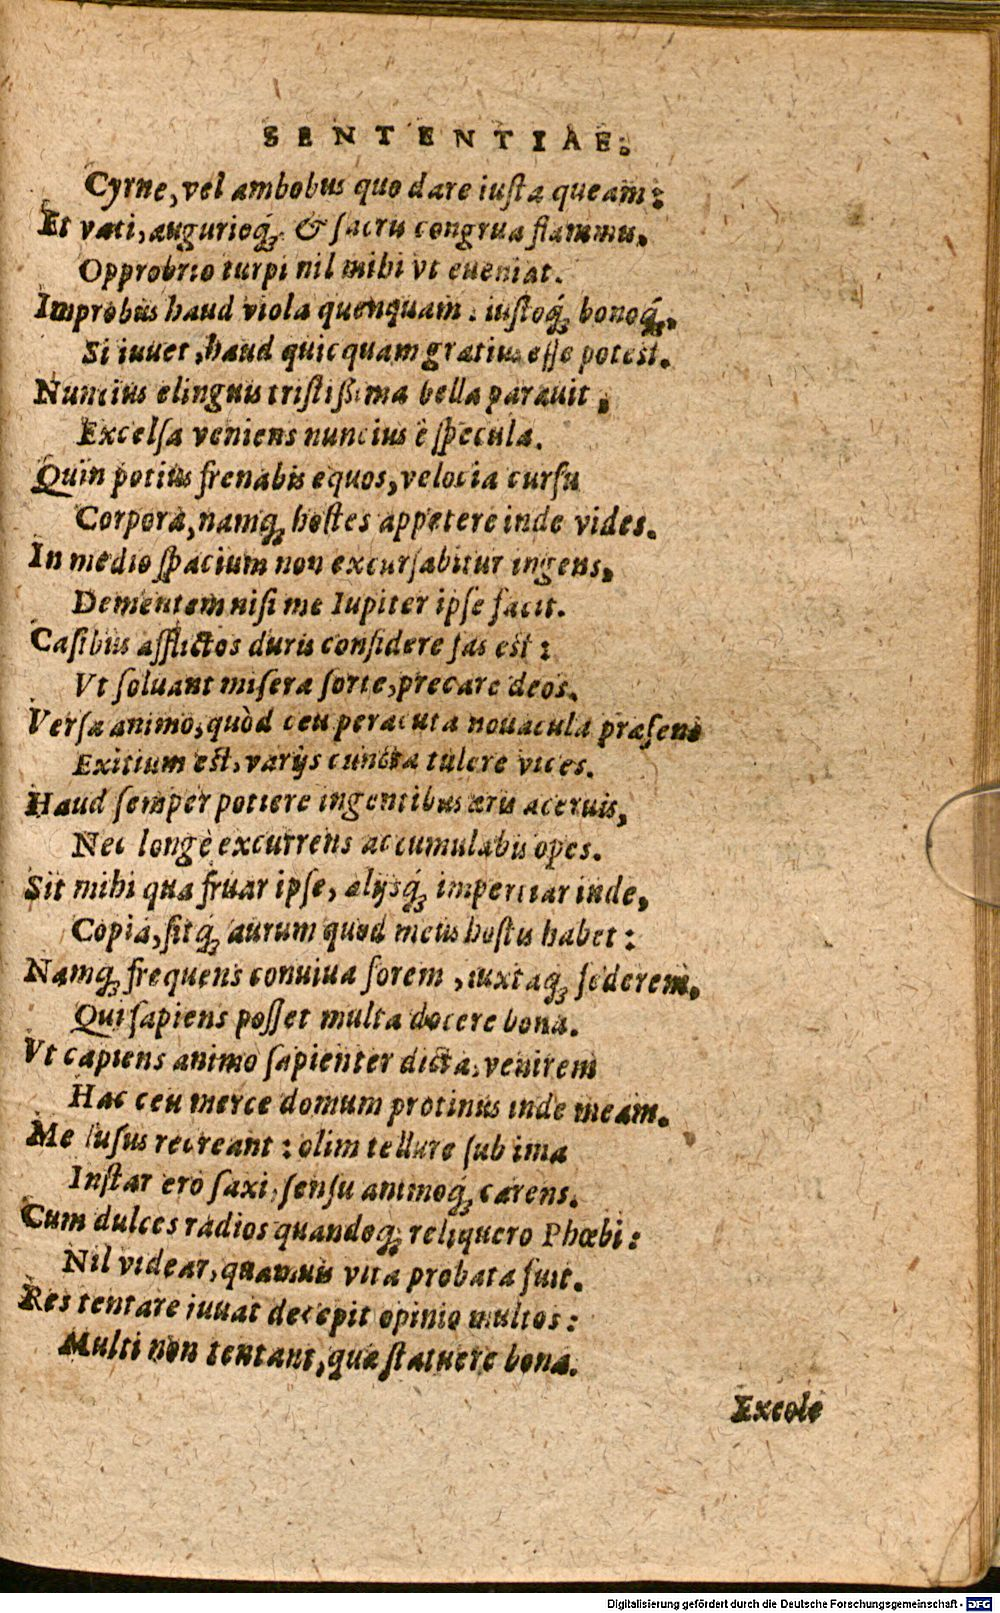 SENTENTIAE.
Cyrne, vel ambobus quo dare iusta queam:
Et vati, augurioq́ꝫ & sacris congrua flammis.
Opprobrio turpi nil mihi vt eueniat.
Improbus haud viola quenquam: iustoq́ꝫ bonoq́ꝫ,
Si iuuet, haud quicquam gratius esse potest.
Nuncius elinguis tristißima bella parauit,
Excelsa veniens nuncius è specula.
Quin potius frenabis equos, velocia cursu
Corpora, namqꝫ hostes appetere inde vides.
In medio spacium non excursabitur ingens,
Dementem nisi me Iupiter ipse facit.
Casibus afflictos duris considere fas est:
Vt soluant misera sorte, precare deos.
Versa animo, quòd ceu peracuta nouacula præsens
Exitium est, varijs cuncta tulere vices.
Haud semper potiere ingentibus æris aceruis,
Nec longè excurrens accumulabis opes.
Sit mihi qua fruar ipse, alijsq́ꝫ impertiar inde,
Copia, sitq́ꝫ aurum quod meus hostis habet:
Namqꝫ frequens conuiua forem, iuxtaqꝫ sederem,
Qui sapiens posset multa docere bona.
Vt capiens animo sapienter dicta, venirem
Hac ceu merce domum protinus inde meam.
Me lusus recreant: olim tellure sub ima
Instar ero saxi, sensu animoq́ꝫ carens.
Cum dulces radios quandoqꝫ reliquero Phœbi:
Nil videar, quamuis vita probata fuit.
Res tentare iuuat decepit opinio multos:
Multi non tentant, quæ statuere bona.
Excole
Digitalisierung gefördert durch die Deutsche Forschungsgemeinschaft - DFG